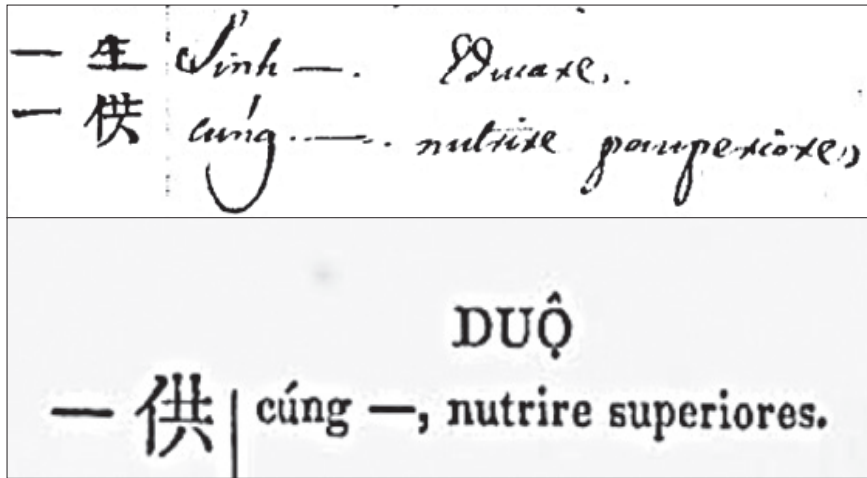 一 生 Sinh —. Educare.
一 供 cúng —. nutrire pauperiores,
DUỘ
一 供 cúng —, nutrire superiores.